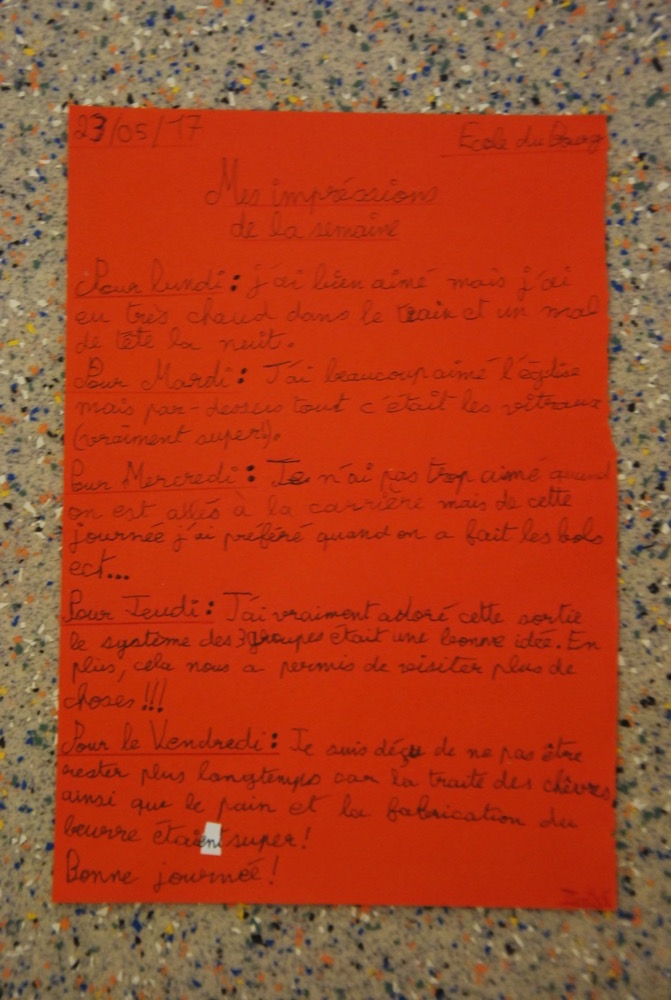 23/05/17
Ecole du Bourg
Mes impréssions
de la semaine
Pour lundi : j'ai bien aimé mais j'ai
eu très chaud dans le train et un mal
de tête la nuit.
Pour Mardi : J'ai beaucoup aimé l'église
mais par-dessus tout c'était les vitraux
(vraiment super!).
Pour Mercredi : Je n'ai pas trop aimé quand
on est allés à la carrière mais de cette
journée j'ai préféré quand on a fait les bols
ect...
Pour Jeudi : J'ai vraiment adoré cette sortie
le système des 3 groupes était une bonne idée. En
plus, cela nous a permis de visiter plus de
choses !!!
Pour le Vendredi : Je suis déçu de ne pas être
rester plus longtemps car la traite des chèvres,
ainsi que le pain et la fabrication du
beurre étaient super!
Bonne journée !